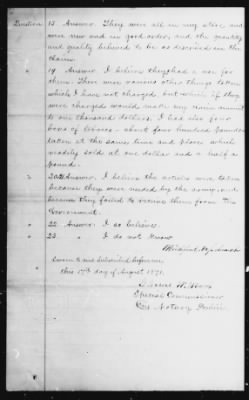 Question 15 Answer. They were all in my store, and
were new and in good order, and the quantity
and quality believed to be as described in the
claim.
" 19 Answer. I believe they had a use for
them. There were various other things taken
which I have not charged, but which if they
were charged would make my claim amount
to one thousand dollars. I had also four
boxes of tobacco - about four hundred pounds
taken at the same time and place which
readily sold at one dollar and a half a
pound.
" Answer. I believe the articles were taken
because they were needed by the army, and
because they failed to receive them from the
Government.
" 22 Answer. I so believe.
" 23 " I do not know
Sworn to and subscribed before me
this 17th day of August 1871.
Special Commissioner
Notary Public